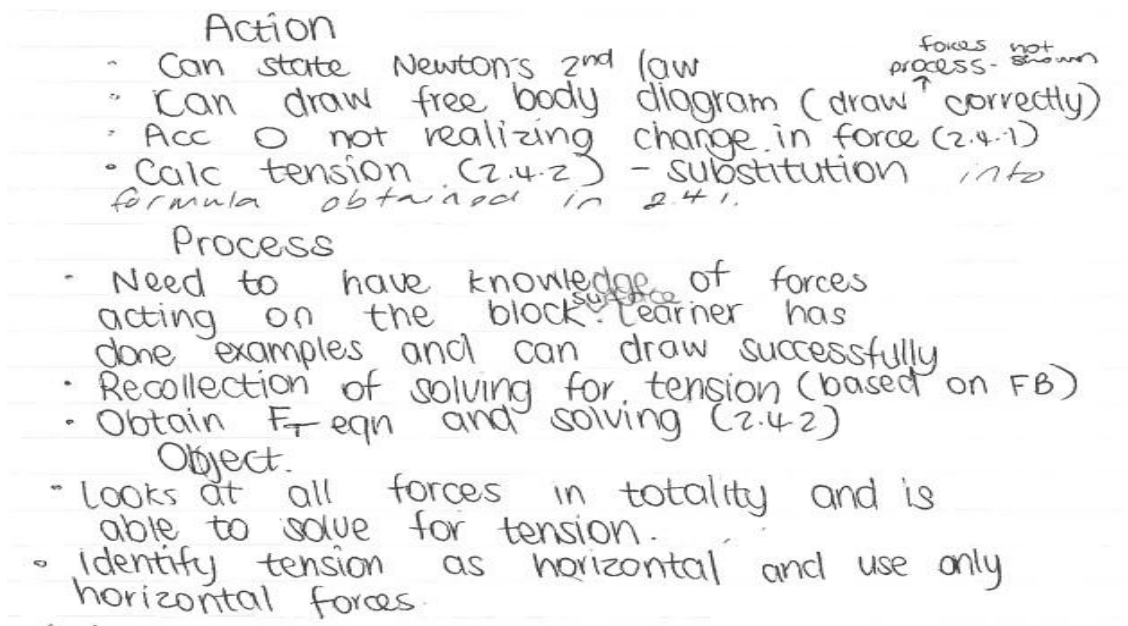 Action
- Can state Newton's 2nd law
forces not
process - shown
• Can draw free body diagram (draw ↑ correctly)
• Acc 0 not realizing change in force (2.4.1)
• Calc tension (2.4.2) - substitution into
formula obtained in 2.4.1.
Process
- Need to have knowledge of forces
surface
acting on the block. Learner has
done examples and can draw successfully
• Recollection of solving for tension (based on FB)
• Obtain FT eqn and solving (2.4.2)
Object.
• Looks at all forces in totality and is
able to solve for tension.
• Identify tension as horizontal and use only
horizontal forces.